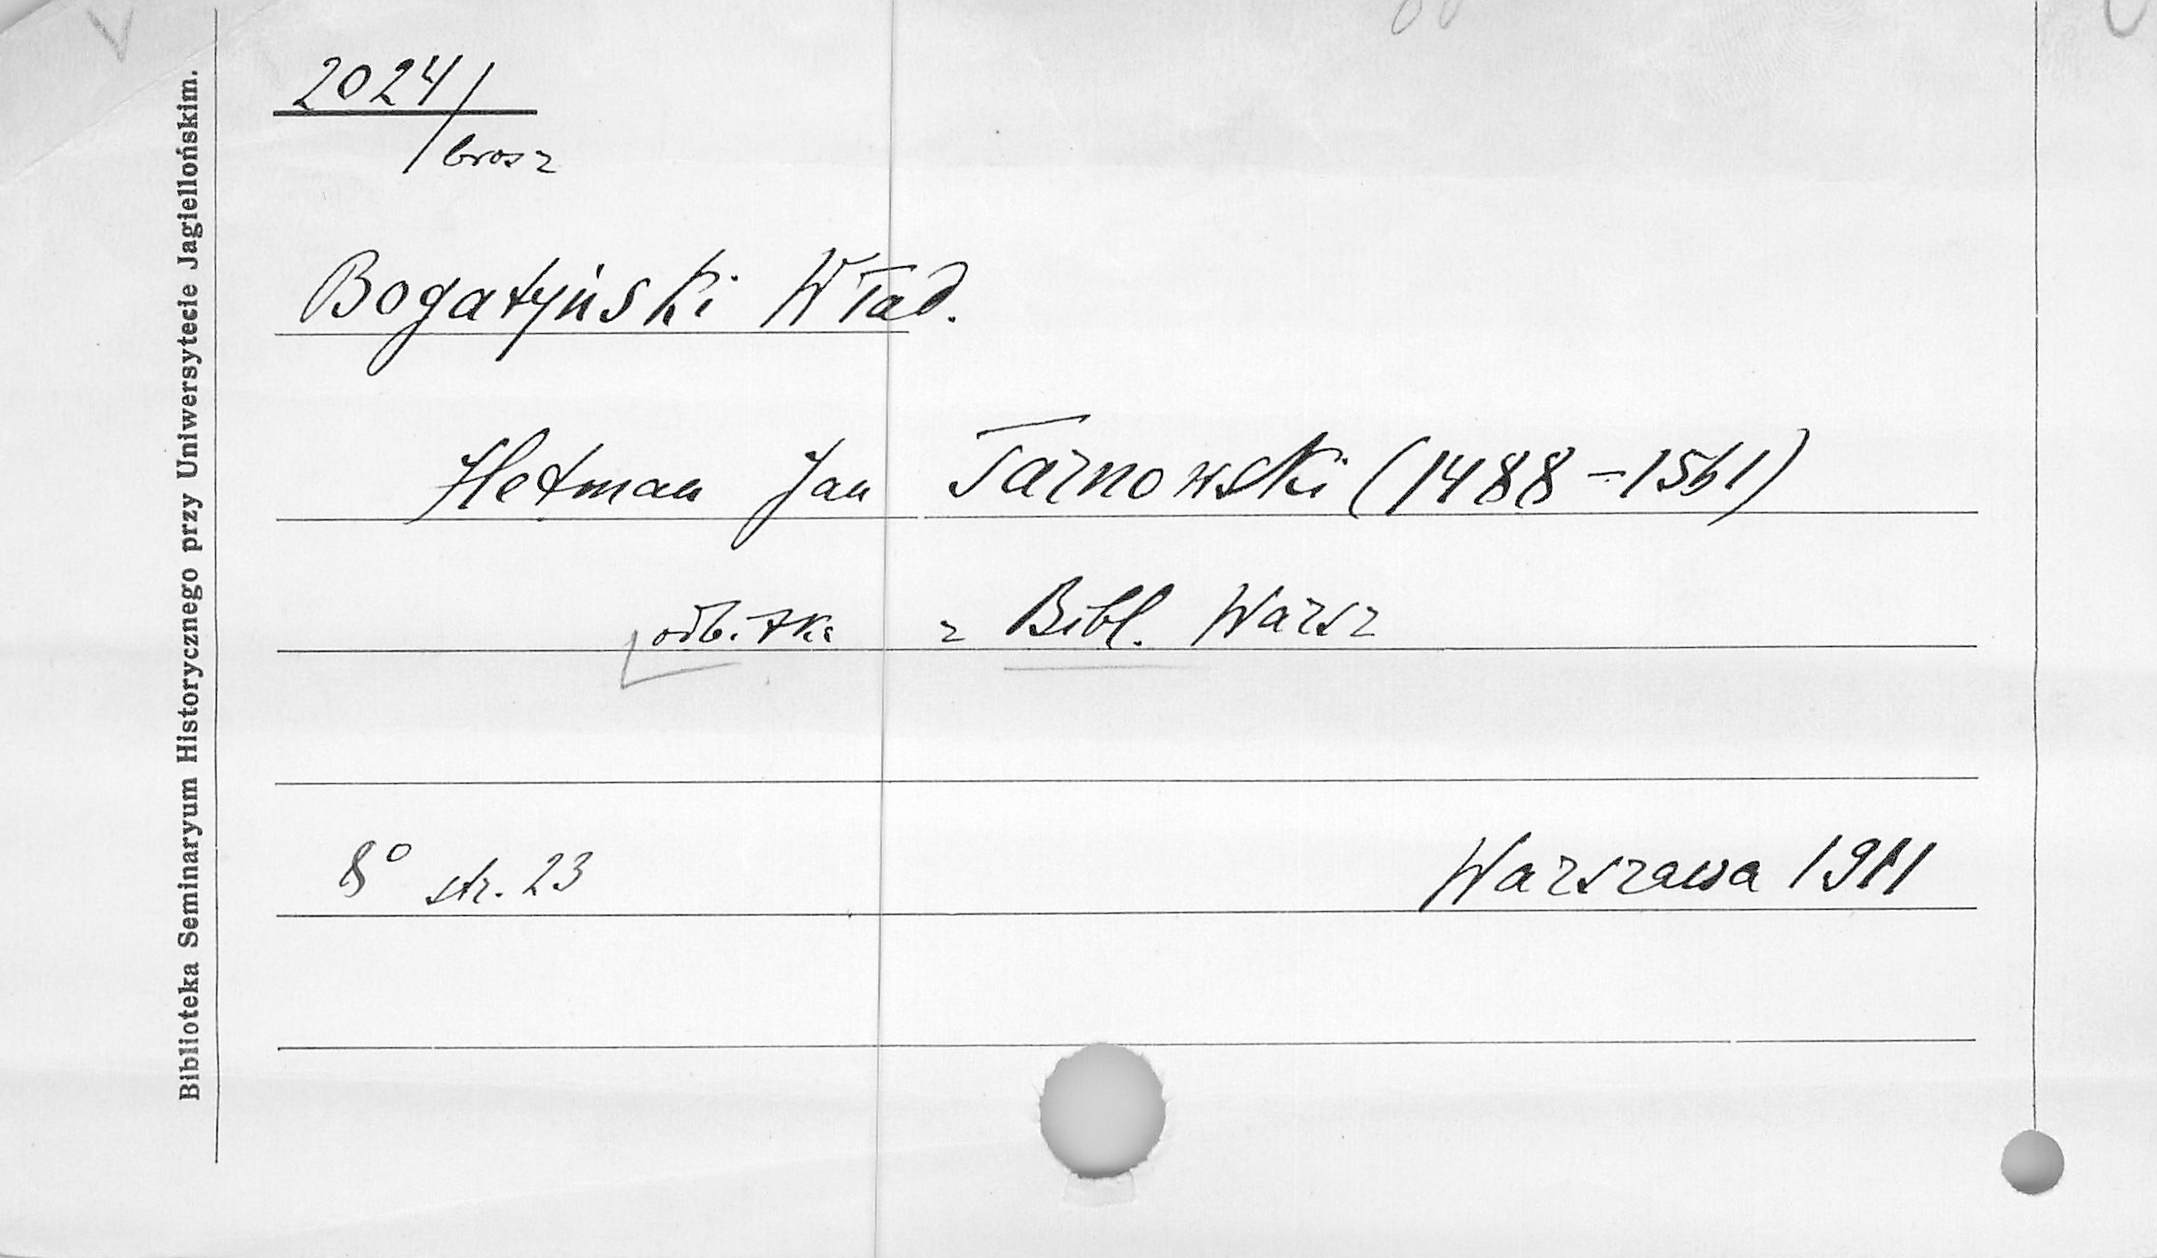 2024/
brosz
Bogatyński Wład.
Hetman Jan Tarnowski (1488–1561)
odbitka z Bibl. Warsz
8° str. 23
Warszawa 1911
Biblioteka Seminaryum Historycznego przy Uniwersytecie Jagiellońskim.